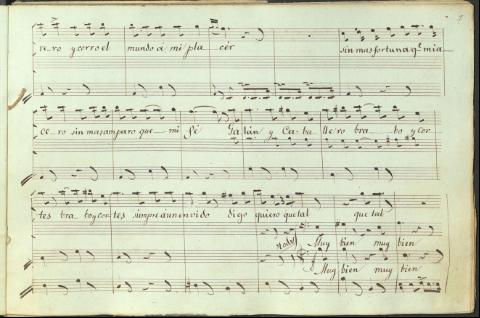 re ro y corro el mundo a mi pla cer sin mas fortuna q.e mi a
ce ro sin mas amparo que mi fé Galán y Ca ba lle ro bra bo y cor
tes bra bo y cor tes siempre aun en vido digo quiero que tal que tal
Todos Muy bien muy bien
Muy bien muy bien